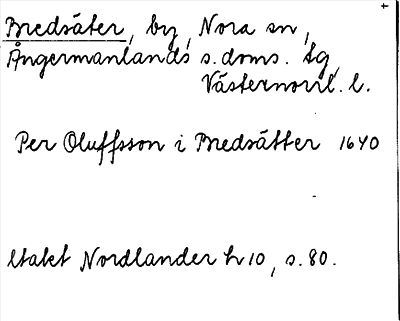 Bredsäter, by, Nora sn,
Ångermanlands s. doms. tg,
Västernorrl. l.
Per Oluffsson i Bredsätter 1640
Utakt Nordlander h 10, s. 80.